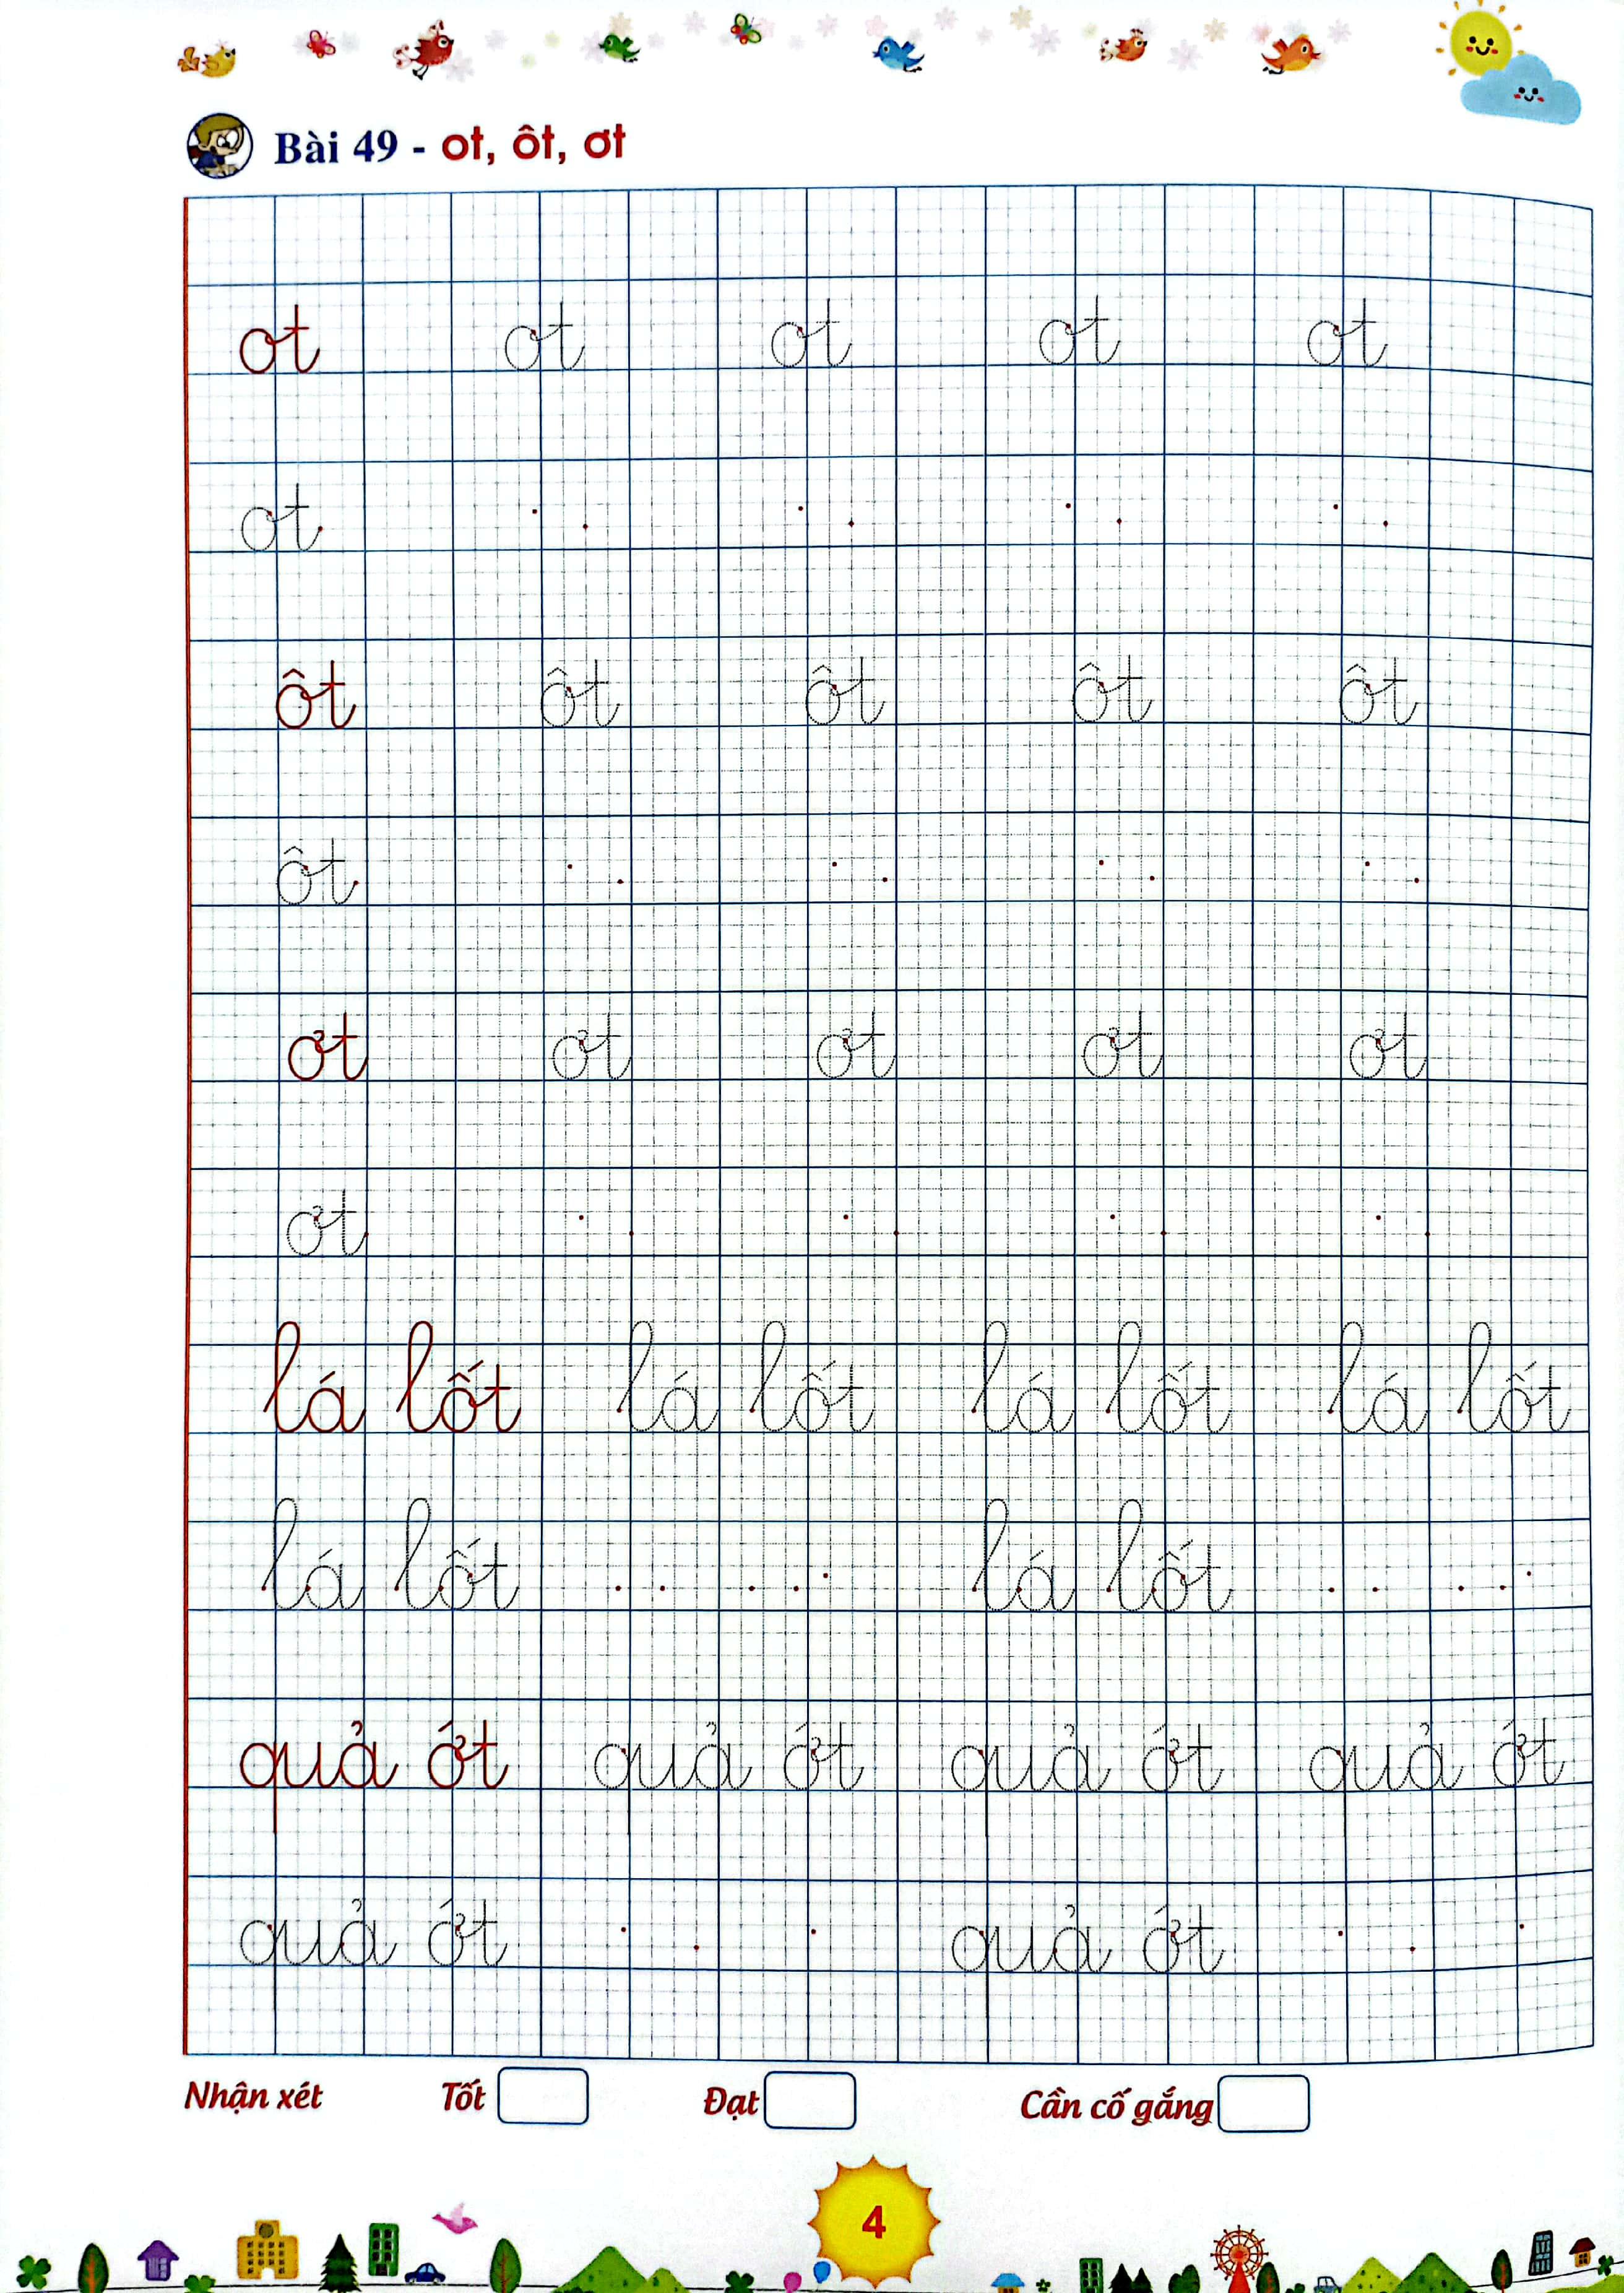 Bài 49 - ot, ôt, ơt
ot ot ot ot ot
ot
ôt ôt ôt ôt ôt
ôt
ơt ơt ơt ơt ơt
ơt
lá lốt lá lốt lá lốt lá lốt
lá lốt lá lốt
quả ớt quả ớt quả ớt quả ớt
quả ớt quả ớt
Nhận xét Tốt Đạt Cần cố gắng
4